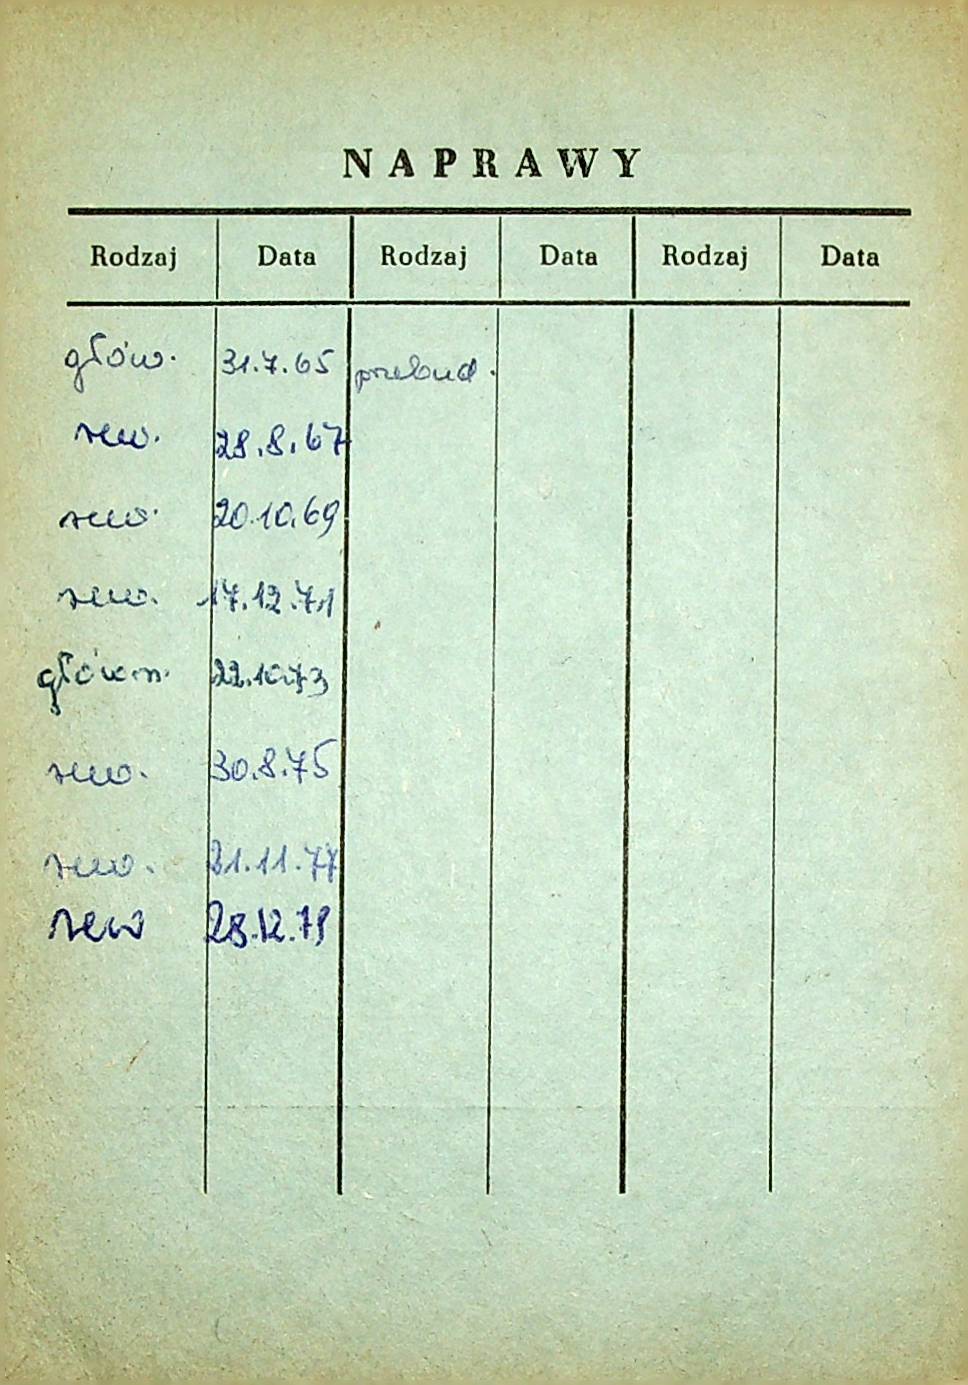 NAPRAWY
Rodzaj Data Rodzaj Data Rodzaj Data
głów. 31.7.65 przebud.
rew. 28.8.67
rew. 20.10.69
rew. 17.12.71
główn. 22.10.73
rew. 30.8.75
rew. 21.11.77
rew 28.12.79